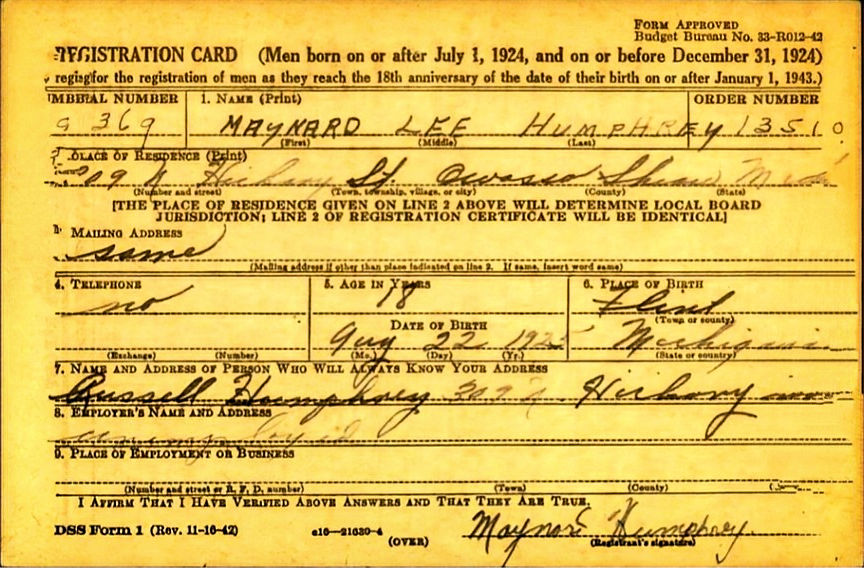 FORM APPROVED
BUDGET BUREAU NO. 33-R012-42
REGISTRATION CARD (Men born on or after July 1, 1924, and on or before December 31, 1924)
for the registration of men as they reach the 18th anniversary of the date of their birth on or after January 1, 1943.)
SERIAL NUMBER 1. NAME (Print) ORDER NUMBER
369 MAYNARD LEE HUMPHREY 13510
(First) (Middle) (Last)
PLACE OF RESIDENCE (Print)
309 N Hickory St. Owosso Shiaw Mich
(Number and street) (Town, township, village, or city) (County) (State)
[THE PLACE OF RESIDENCE GIVEN ON LINE 2 ABOVE WILL DETERMINE LOCAL BOARD
JURISDICTION; LINE 2 OF REGISTRATION CERTIFICATE WILL BE IDENTICAL]
MAILING ADDRESS
same
(Mailing address if other than place indicated on line 2. If same, insert word same)
4. TELEPHONE 5. AGE IN YEARS 6. PLACE OF BIRTH
no 18 Flint
(Town or county)
DATE OF BIRTH
Aug 22 1925 Michigan
(Exchange) (Number) (Mo.) (Day) (Yr.) (State or country)
7. NAME AND ADDRESS OF PERSON WHO WILL ALWAYS KNOW YOUR ADDRESS
Russell Humphrey 309 N Hickory
8. EMPLOYER'S NAME AND ADDRESS
9. PLACE OF EMPLOYMENT OR BUSINESS
(Number and street or R. F. D. number) (Town) (County)
I AFFIRM THAT I HAVE VERIFIED ABOVE ANSWERS AND THAT THEY ARE TRUE.
DSS Form 1 (Rev. 11-16-42) e16—21630-4 (OVER)
Maynard Humphrey
(Registrant's signature)